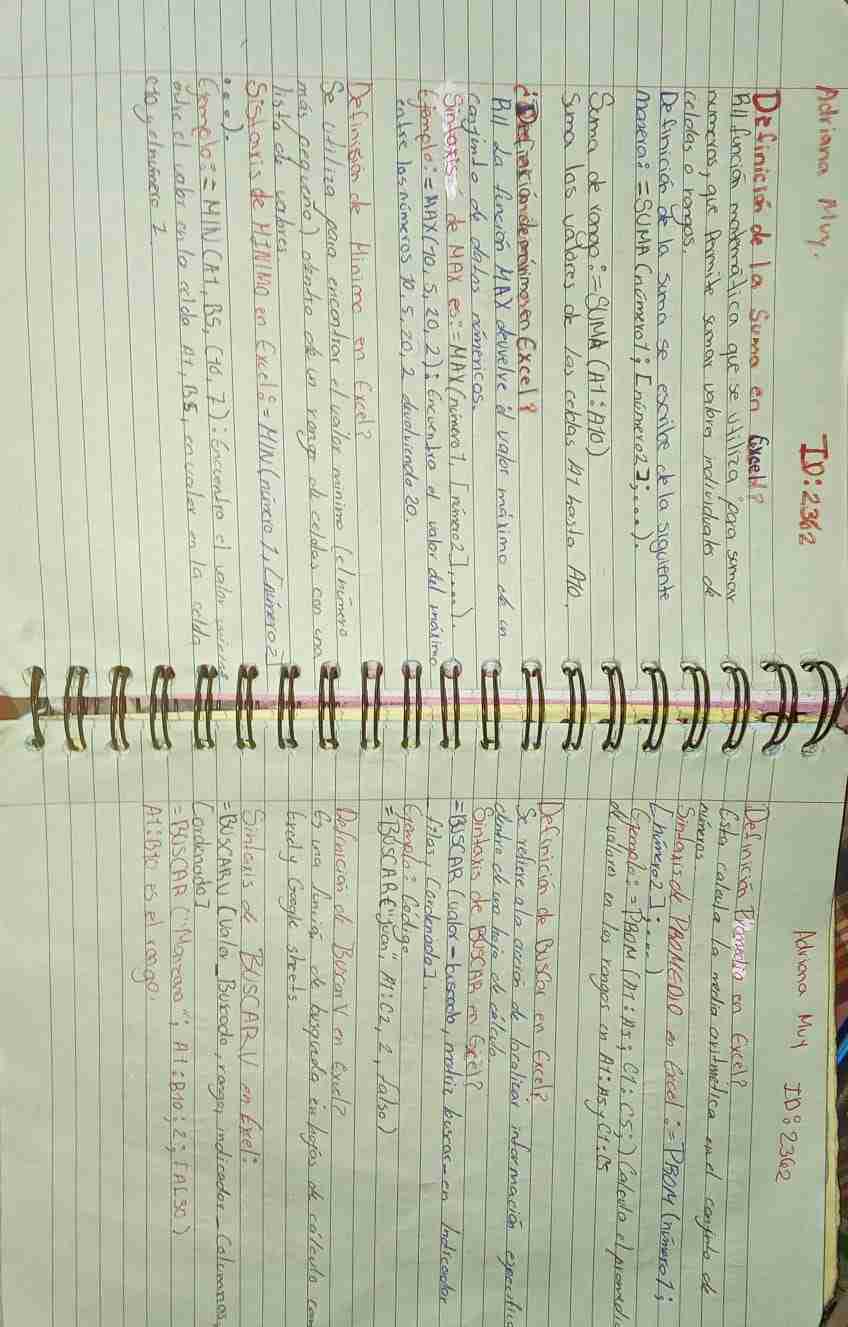 Adriana Muy. ID: 2362
Definición de la Suma en Excel?
R// función matemática que se utiliza para sumar
numeros, que permite sumar valores individuales de
celdas o rangos.
Definición de la suma se escribe de la siguiente
manera: =SUMA (número1; [número2]; ...).
Suma de rango: =SUMA (A1:A10)
Suma los valores de las celdas A1 hasta A10.
¿Definición de máximo en Excel?
R// La función MAX devuelve el valor máximo de un
conjunto de datos númericos.
Sintaxis de MAX es: =MAX(número1, [número2], ...).
Ejemplo: =MAX(10, 5, 20, 2): Encuentra el valor del máximo
entre los números 10, 5, 20, 2 devolviendo 20.
Definición de Minimo en Excel?
Se utiliza para encontrar el valor minimo (el número
más pequeño) dentro de un rango de celdas con una
lista de valores.
Sistaxis de MINIMO en Excel: =MIN(número 1, [número2]
...).
Ejemplo: =MIN(A1, B5, C10, 7): Encuentra el valor
entre el valor en la celda A1, B5, en valor en la celda
C10 y el número 7.
Adriana Muy ID: 2362
Definición Promedio en Excel?
Esta calcula la media aritmética en el conjunto de
números.
Sintaxis de PROMEDIO en Excel: =PROM (número1;
[número2]; ...)
Ejemplo: =PROM (A1:A5; C1:C5;) Calcula el promedio
de valores en los rangos en A1:A5 y C1:C5
Definición de Buscar en Excel?
Se refiere a la acción de localizar información especifica
dentro de una hoja de cálculo
Sintaxis de BUSCAR en Excel?
=BUSCAR (valor-buscado, matriz buscar-en Indicador
filas, [ordenado].
Ejemplo: Código
=BUSCAR("Juan," A1:C2, 2, falso)
Definición de BuscarV en Excel?
Es una función de busqueda en hojas de cálculo como
Excel y Google Sheets.
Sintaxis de BUSCARV en Excel:
=BUSCARV (Valor_Buscado, rango, indicador_Columnas,
[ordenado]
=BUSCAR ("Manzana"; A1:B10; 2; FALSO)
A1:B10 es el rango.